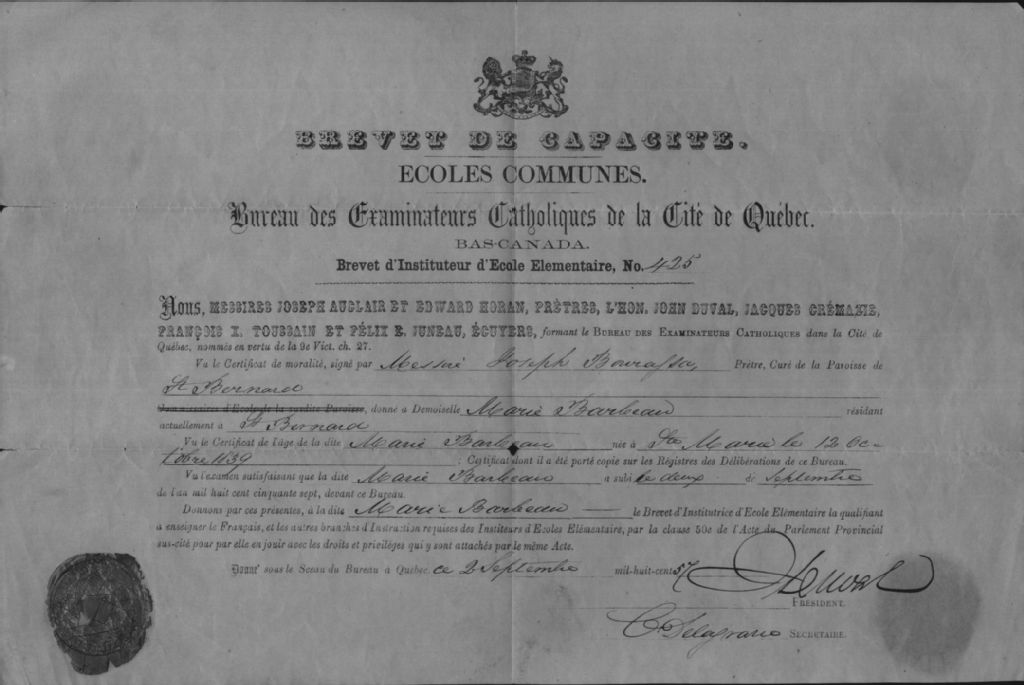 BREVET DE CAPACITE.
ECOLES COMMUNES.
Bureau des Examinateurs Catholiques de la Cité de Québec.
BAS-CANADA.
Brevet d'Instituteur d'Ecole Elementaire, No. 425
Nous, MESSIRES JOSEPH AUCLAIR ET EDWARD HORAN, PRÈTRES, L'HON. JOHN DUVAL, JACQUES CRÉMAZIE,
FRANÇOIS X. TOUSSAIN ET FÉLIX E. JUNEAU, ÉCUYERS, formant le BUREAU DES EXAMINATEURS CATHOLIQUES dans la Cité de
Québec, nommés en vertu de la 9e Vict. ch. 27.
Vu le Certificat de moralité, signé par Messire Joseph Bourassa, Prêtre, Curé de la Paroisse de
St Bernard
d'Ecole de la susdite Paroisse, donné à Demoiselle Marie Barbeau résidant
actuellement à St Bernard
Vu le Certificat de l'âge de la dite Marie Barbeau née à Ste Marie le 12 Oc-
tobre 1839 : Certificat dont il a été porté copie sur les Régistres des Délibérations de ce Bureau.
Vu l'examen satisfaisant que la dite Marie Barbeau a subi le deux de Septembre
de l'an mil huit cent cinquante sept, devant ce Bureau.
Donnons par ces présentes, à la dite Marie Barbeau — le Brevet d'Institutrice d'Ecole Elémentaire la qualifiant
à enseigner le Français, et les autres branches d'Instruction requises des Institeurs d'Ecoles Elémentaire, par la clause 50e de l'Acte du Parlement Provincial
sus-cité pour par elle en jouir avec les droits et privilèges qui y sont attachés par le même Acte.
Donné sous le Sceau du Bureau à Québec, ce 2 Septembre mil-huit-cent 57
Duval
PRÉSIDENT.
C. Delagrave SECRETAIRE.